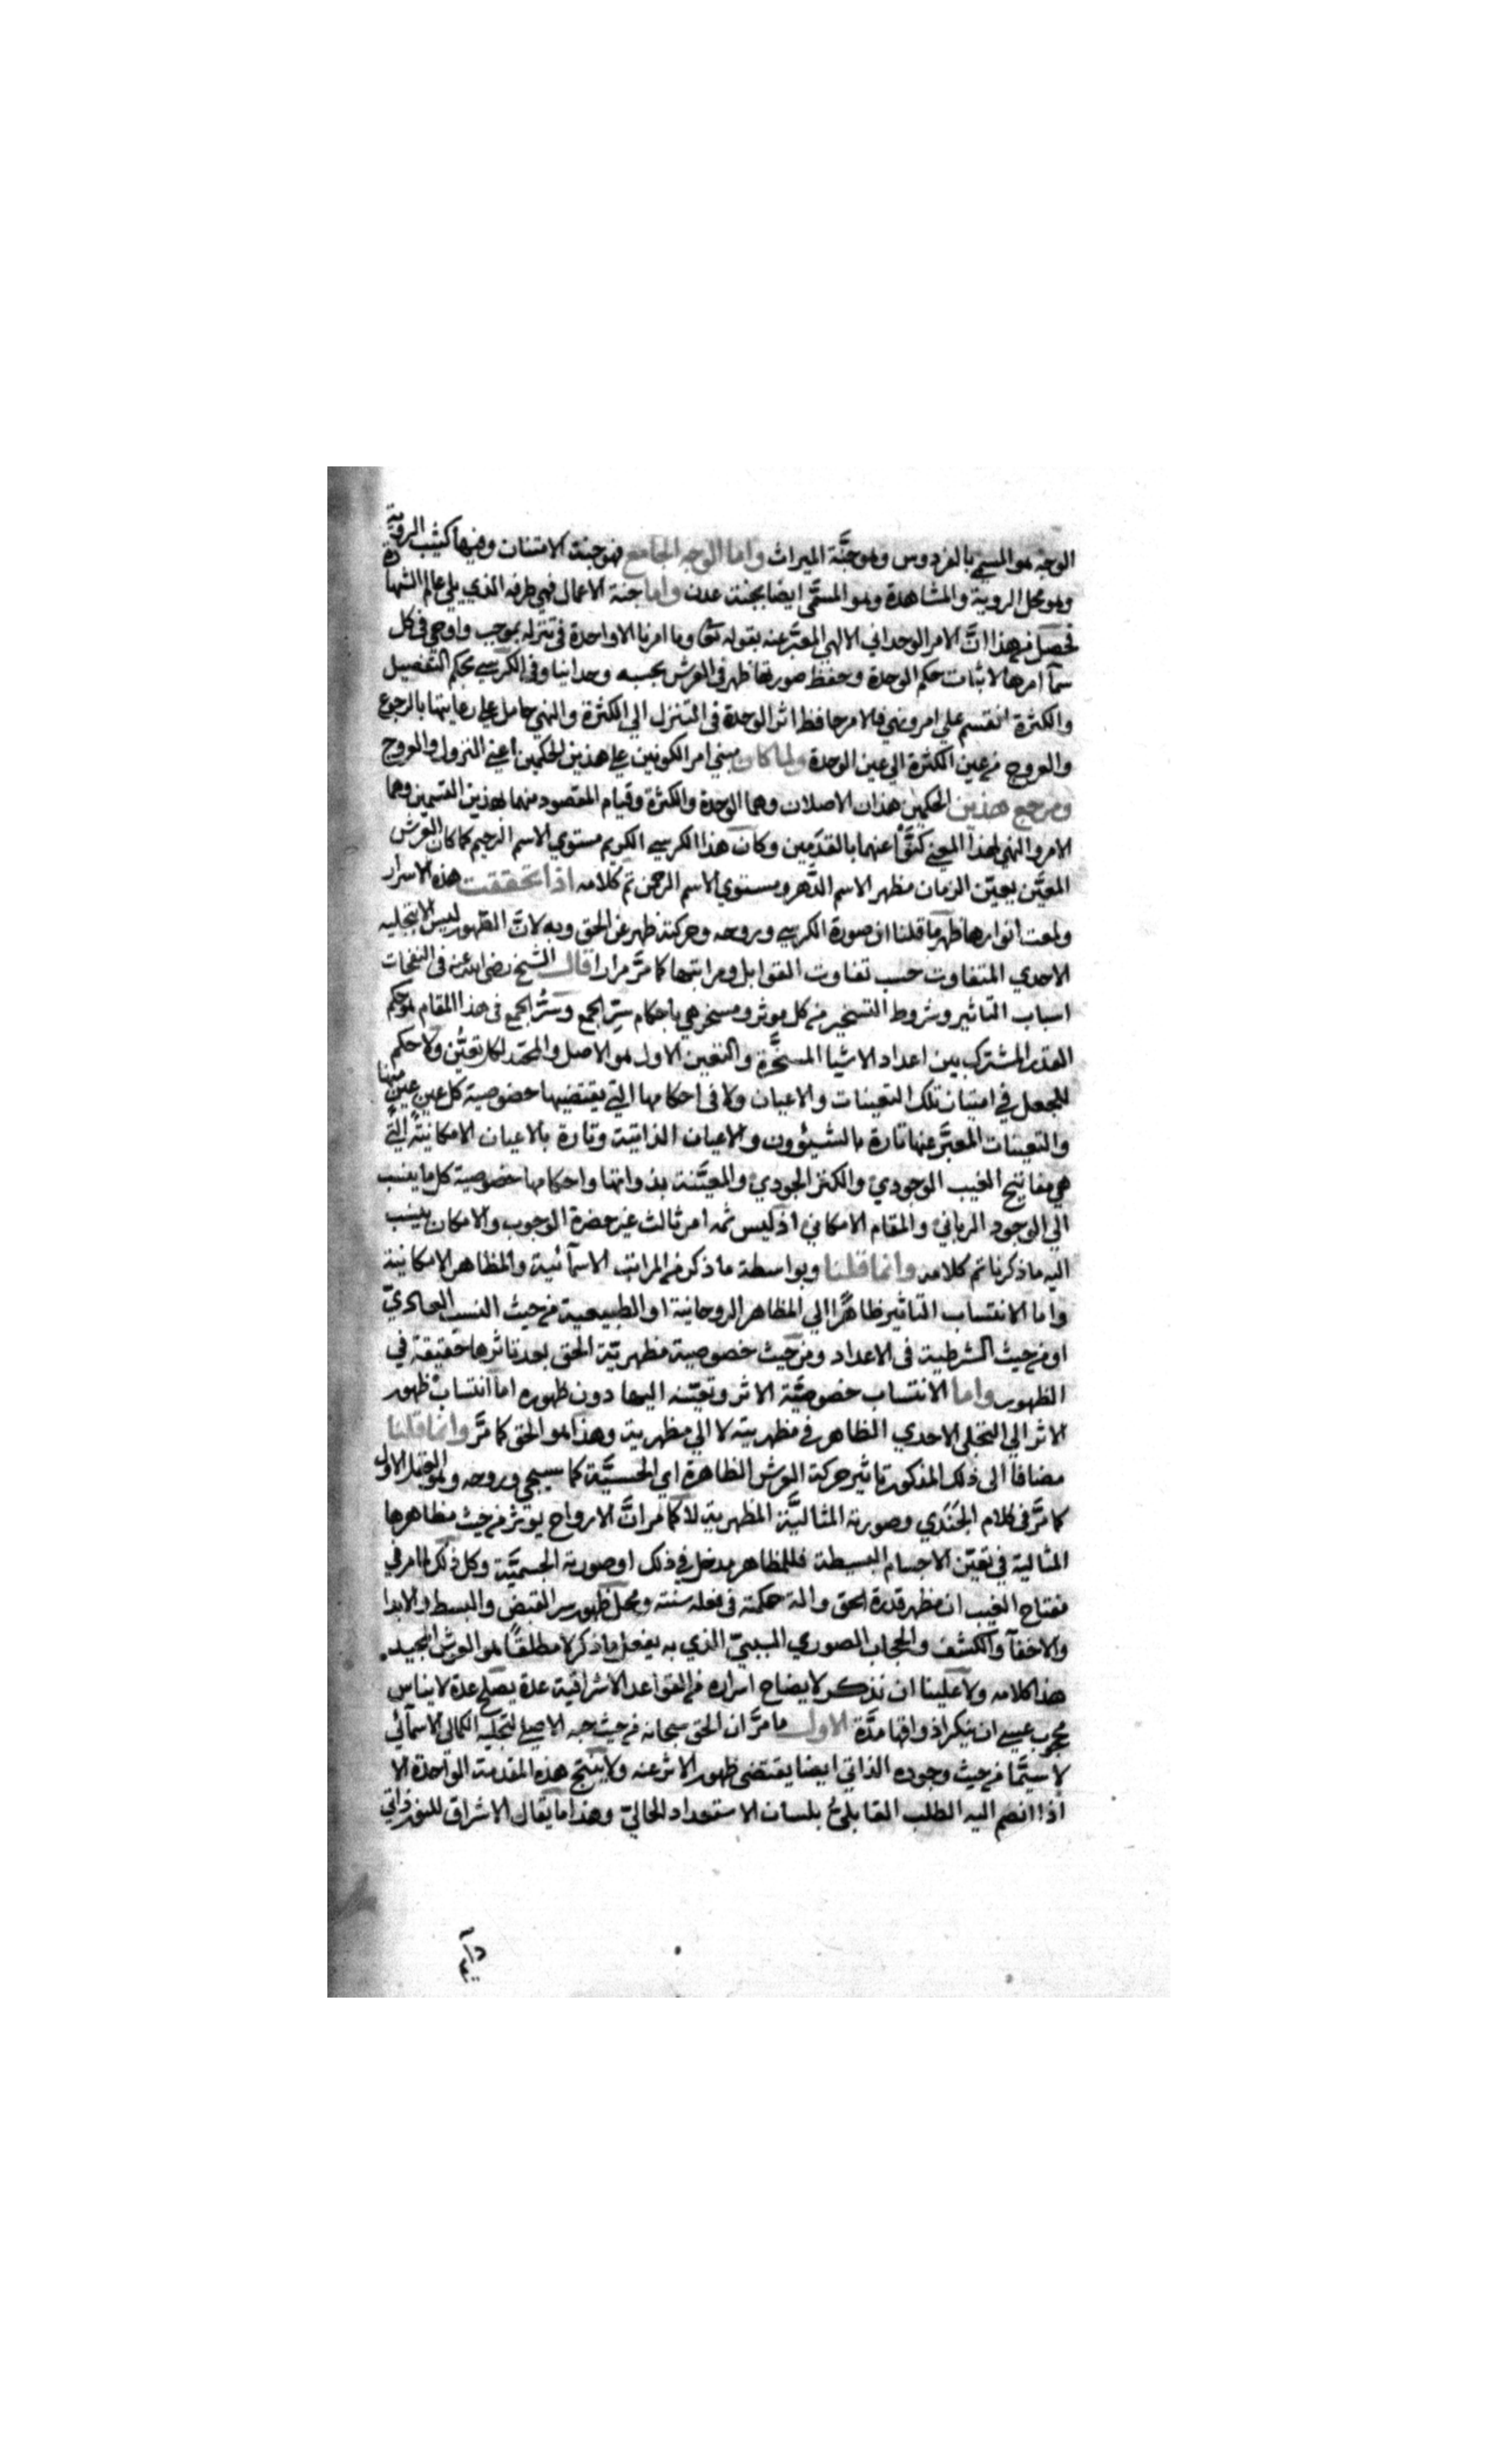 الوجه هو المسمى بالفردوس وهو جنَّة الميراث واما الوجه الجامع فهو جنة الامتنان وفيها كثيب الروية
وهو محل الروية والمشاهدة وهو المسمَّى ايضا بجنة عدن واما جنة الاعمال فهي طرفه الذي يلي عالم الشهادة
فحصل من هذا انَّ الامر الوحداني الالهي المعبَّر عنه بقوله تعا وما امرنا الا واحدة في تنزله بموجب واوحي في كل
سمآ امرها لاثبات حكم الوحدة وحفظ صورتها ظهر في العرش بحسبه وحدانيا وفي الكرسي بحكم التفصيل
والكثرة انقسم علي امر ونهي فالامر حافظ اثر الوحدة في التنزل الي الكثرة والنهي حامل علي رعايتها بالرجوع
والعروج من عين الكثرة الي عين الوحدة ولما كان مبني امر الكونين علي هذين الحكمين اعني النزول والعروج
ومرجع هذين الحكمين هذان الاصلان وهما الوحدة والكثرة وقيام المقصود منهما بهذين القسمين وهما
الامر والنهي لهذا المعني كنَّوا عنهما بالقدمين وكان هذا الكرسي الكريم مستوي الاسم الرحيم كما كان العرش
المعيَّن بعين الزمان مظهر الاسم الدَّهر ومستوي الاسم الرحمن تم كلامه اذا تحققت هذه الاسرار
ولمعت انوارها ظهر ما قلنا ان صورة الكرسي وروحه وحركته ظهر عن الحق وبه لانَّ الظهور ليس الا بتجليه
الاحدي المتفاوت حسب تفاوت القوابل ومراتبها كما مرَّ مرارا قال الشيخ رضي الله عنه في النفحات
اسباب التاثير وشروط التسخير من كل موثر ومسخر هي باحكام سِرّ الجمع وسرُّ الجمع في هذا المقام هو حكم
القدر المشترك بين اعداد الاشيا المسخَّرة والتعين الاول هو الاصل والمحتد لكل تعيُّن ولا حكم
للجعل في امتياز تلك التعينات والاعيان ولا في احكامها التي يقتضيها خصوصية كل عينٍ عينٍ منها
والتعينات المعبَّر عنها تارة بالشيؤون والاعيان الذاتية وتارة بالاعيان الامكانيَّة التي
هي مفاتيح الغيب الوجودي والكنز الجودي والمعيَّنة بذواتها واحكامها خصوصية كل ما ينسب
الي الوجود الرباني والمقام الامكاني اذ ليس ثمه امر ثالث غير حضرة الوجوب والامكان ينسب
اليه ما ذكرنا تم كلامه وانما قلنا وبواسطة ما ذكر من المراتب الاسمآئية والمظاهر الامكانية
واما الانتساب التاثير ظاهرًا الي المظاهر الروحانية او الطبيعية من حيث النسب العادي
او من حيث الشرطية في الاعداد ومن حيث خصوصية مظهريَّة الحق بعد تاثرها حقيقة في
الظهور واما الانتساب خصوصيَّة الاثر وتعيّنه اليها دون ظهوره اما انتساب ظهور
الاثر الي التجلي الاحدي الظاهر في مظهريته لا الي مظهرية وهذا هو الحق كما مرَّ وانما قلنا
مضافا الى ذلك المذكور تاثير حركة العرش الظاهرة اي الحسيَّة كما سيجي وروحه وهو العقل الاول
كما مرَّ في كلام الجَنَدي وصورته المثاليَّة المظهرية لا كما مر انَّ الارواح يوثر من حيث مظاهرها
المثالية في تعيّن الاجسام البسيطة فللمظاهر مدخل في ذلك او صورته الجسميَّة وكل ذلك لما مر في
مفتاح الغيب ان مظهر قدرة الحق والة حكمته في فعله سنته ومحل ظهور سر القبض والبسط والابدا
والاخفآ والكشف والحجاب الصوري السببيّ الذي به يفعل ما ذكر لا مطلقًا هو العرش المجيد.
هذا كلامه ولا علينا ان نذكر لايضاح اسراره من القواعد الاشراقية عدة يصلح عدة لايناس
محجوب عسي ان ينكر اذواقها مدَّة الاول ما مرَّ ان الحق سبحانه من حيث حبه الاصلي لتجليه الكمالي الاسمآئي
لا سيَّما من حيث وجوده الذاتي ايضا يقتضي ظهور الاثر عنه ولا ينتج هذه المقدمة الواحدة الا
اذا انضم اليه الطلب القابليّ بلسان الاستعداد الحاليّ وهذا ما يقال الاشراق للنور ذاتي
دآيم